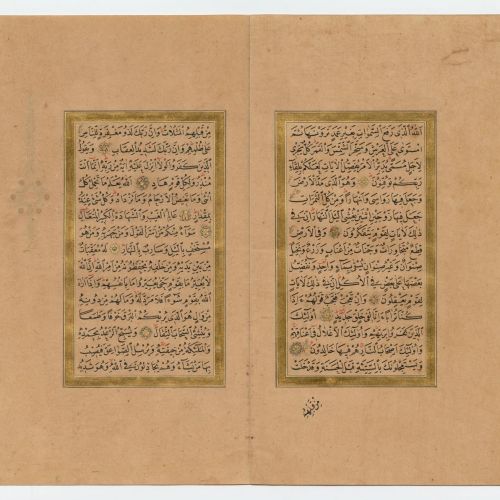 اَللّٰهُ الَّذى رَفَعَ السَّمٰوَاتِ بِغَيْرِ عَمَدٍ تَرَوْنَهَا ثُمَّ
اسْتَوٰى عَلَى الْعَرْشِ وَسَخَّرَ الشَّمْسَ وَالْقَمَرَ كُلٌّ يَجْرى
لِاَجَلٍ مُسَمًّى يُدَبِّرُ الْاَمْرَ يُفَصِّلُ الْاٰيَاتِ لَعَلَّكُمْ بِلِقَاءِ
رَبِّكُمْ تُوقِنُونَ وَهُوَ الَّذى مَدَّ الْاَرْضَ
وَجَعَلَ فيهَا رَوَاسِىَ وَاَنْهَارًا وَمِنْ كُلِّ الثَّمَرَاتِ
جَعَلَ فيهَا زَوْجَيْنِ اثْنَيْنِ يُغْشِى الَّيْلَ النَّهَارَ اِنَّ فى ذٰلِكَ
لَاٰيَاتٍ لِقَوْمٍ يَتَفَكَّرُونَ وَفِى الْاَرْضِ
قِطَعٌ مُتَجَاوِرَاتٌ وَجَنَّاتٌ مِنْ اَعْنَابٍ وَزَرْعٌ وَنَخيلٌ
صِنْوَانٌ وَغَيْرُ صِنْوَانٍ يُسْقٰى بِمَاءٍ وَاحِدٍ وَنُفَضِّلُ
بَعْضَهَا عَلٰى بَعْضٍ فِى الْاُكُلِ اِنَّ فى ذٰلِكَ لَاٰيَاتٍ
لِقَوْمٍ يَعْقِلُونَ وَاِنْ تَعْجَبْ فَعَجَبٌ قَوْلُهُمْ ءَاِذَا
كُنَّا تُرَابًا ءَاِنَّا لَفى خَلْقٍ جَديدٍ اُولٰئِكَ
الَّذينَ كَفَرُوا بِرَبِّهِمْ وَاُولٰئِكَ الْاَغْلَالُ فى اَعْنَاقِهِمْ
وَاُولٰئِكَ اَصْحَابُ النَّارِ هُمْ فيهَا خَالِدُونَ
وَيَسْتَعْجِلُونَكَ بِالسَّيِّئَةِ قَبْلَ الْحَسَنَةِ وَقَدْ خَلَتْ
من قبلهم
مِنْ قَبْلِهِمُ الْمَثُلَاتُ وَاِنَّ رَبَّكَ لَذُو مَغْفِرَةٍ لِلنَّاسِ
عَلٰى ظُلْمِهِمْ وَاِنَّ رَبَّكَ لَشَديدُ الْعِقَابِ وَيَقُولُ
الَّذينَ كَفَرُوا لَوْلَا اُنْزِلَ عَلَيْهِ اٰيَةٌ مِنْ رَبِّه اِنَّمَا اَنْتَ
مُنْذِرٌ وَلِكُلِّ قَوْمٍ هَادٍ اَللّٰهُ يَعْلَمُ مَا تَحْمِلُ كُلُّ
اُنْثٰى وَمَا تَغيضُ الْاَرْحَامُ وَمَا تَزْدَادُ وَكُلُّ شَىْءٍ عِنْدَهُ
بِمِقْدَارٍ عَالِمُ الْغَيْبِ وَالشَّهَادَةِ الْكَبيرُ الْمُتَعَالِ
سَوَاءٌ مِنْكُمْ مَنْ اَسَرَّ الْقَوْلَ وَمَنْ جَهَرَ بِه وَمَنْ هُوَ
مُسْتَخْفٍ بِالَّيْلِ وَسَارِبٌ بِالنَّهَارِ لَهُ مُعَقِّبَاتٌ
مِنْ بَيْنِ يَدَيْهِ وَمِنْ خَلْفِه يَحْفَظُونَهُ مِنْ اَمْرِ اللّٰهِ اِنَّ اللّٰهَ
لَا يُغَيِّرُ مَا بِقَوْمٍ حَتّٰى يُغَيِّرُوا مَا بِاَنْفُسِهِمْ وَاِذَا اَرَادَ
اللّٰهُ بِقَوْمٍ سُوءًا فَلَا مَرَدَّ لَهُ وَمَا لَهُمْ مِنْ دُونِه
مِنْ وَالٍ هُوَ الَّذى يُريكُمُ الْبَرْقَ خَوْفًا وَطَمَعًا
وَيُنْشِئُ السَّحَابَ الثِّقَالَ وَيُسَبِّحُ الرَّعْدُ بِحَمْدِه
وَالْمَلٰئِكَةُ مِنْ خيفَتِه وَيُرْسِلُ الصَّوَاعِقَ فَيُصيبُ
بِهَا مَنْ يَشَاءُ وَهُمْ يُجَادِلُونَ فِى اللّٰهِ وَهُوَ شَديدُ